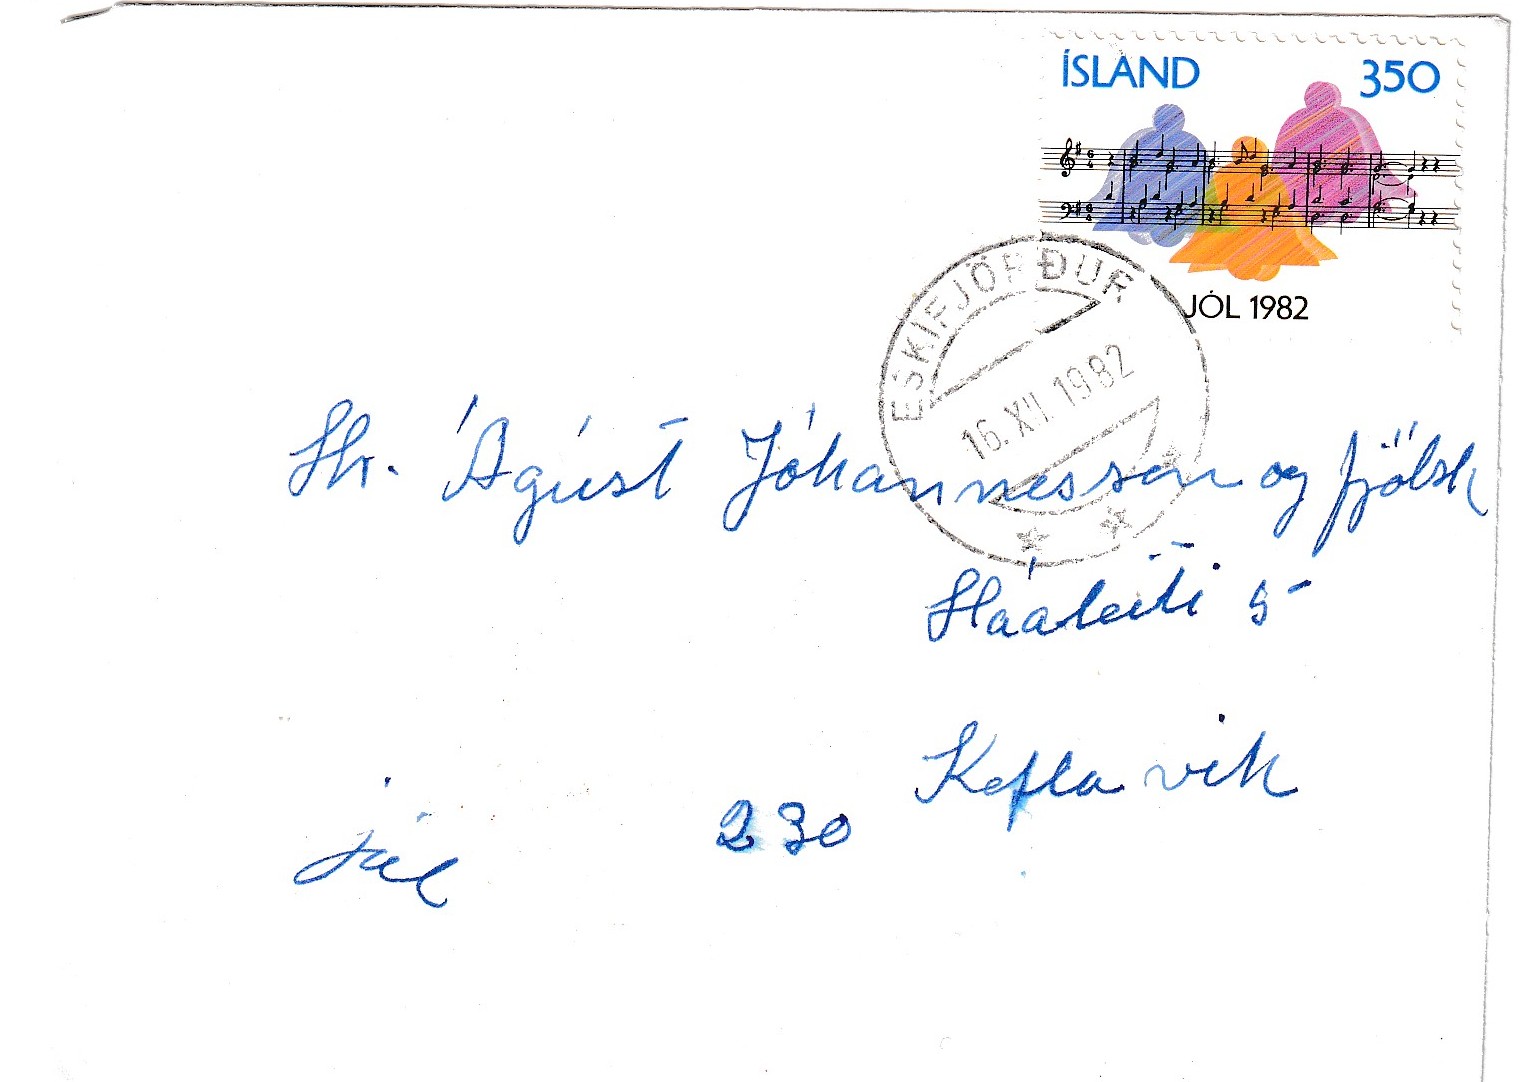 ÍSLAND 350
JÓL 1982
ESKIFJÖRÐUR
16.XII.1982
Hr. Ágúst Jóhannesson og fjölsk
Háaleiti 5
Keflavik
230
Jól